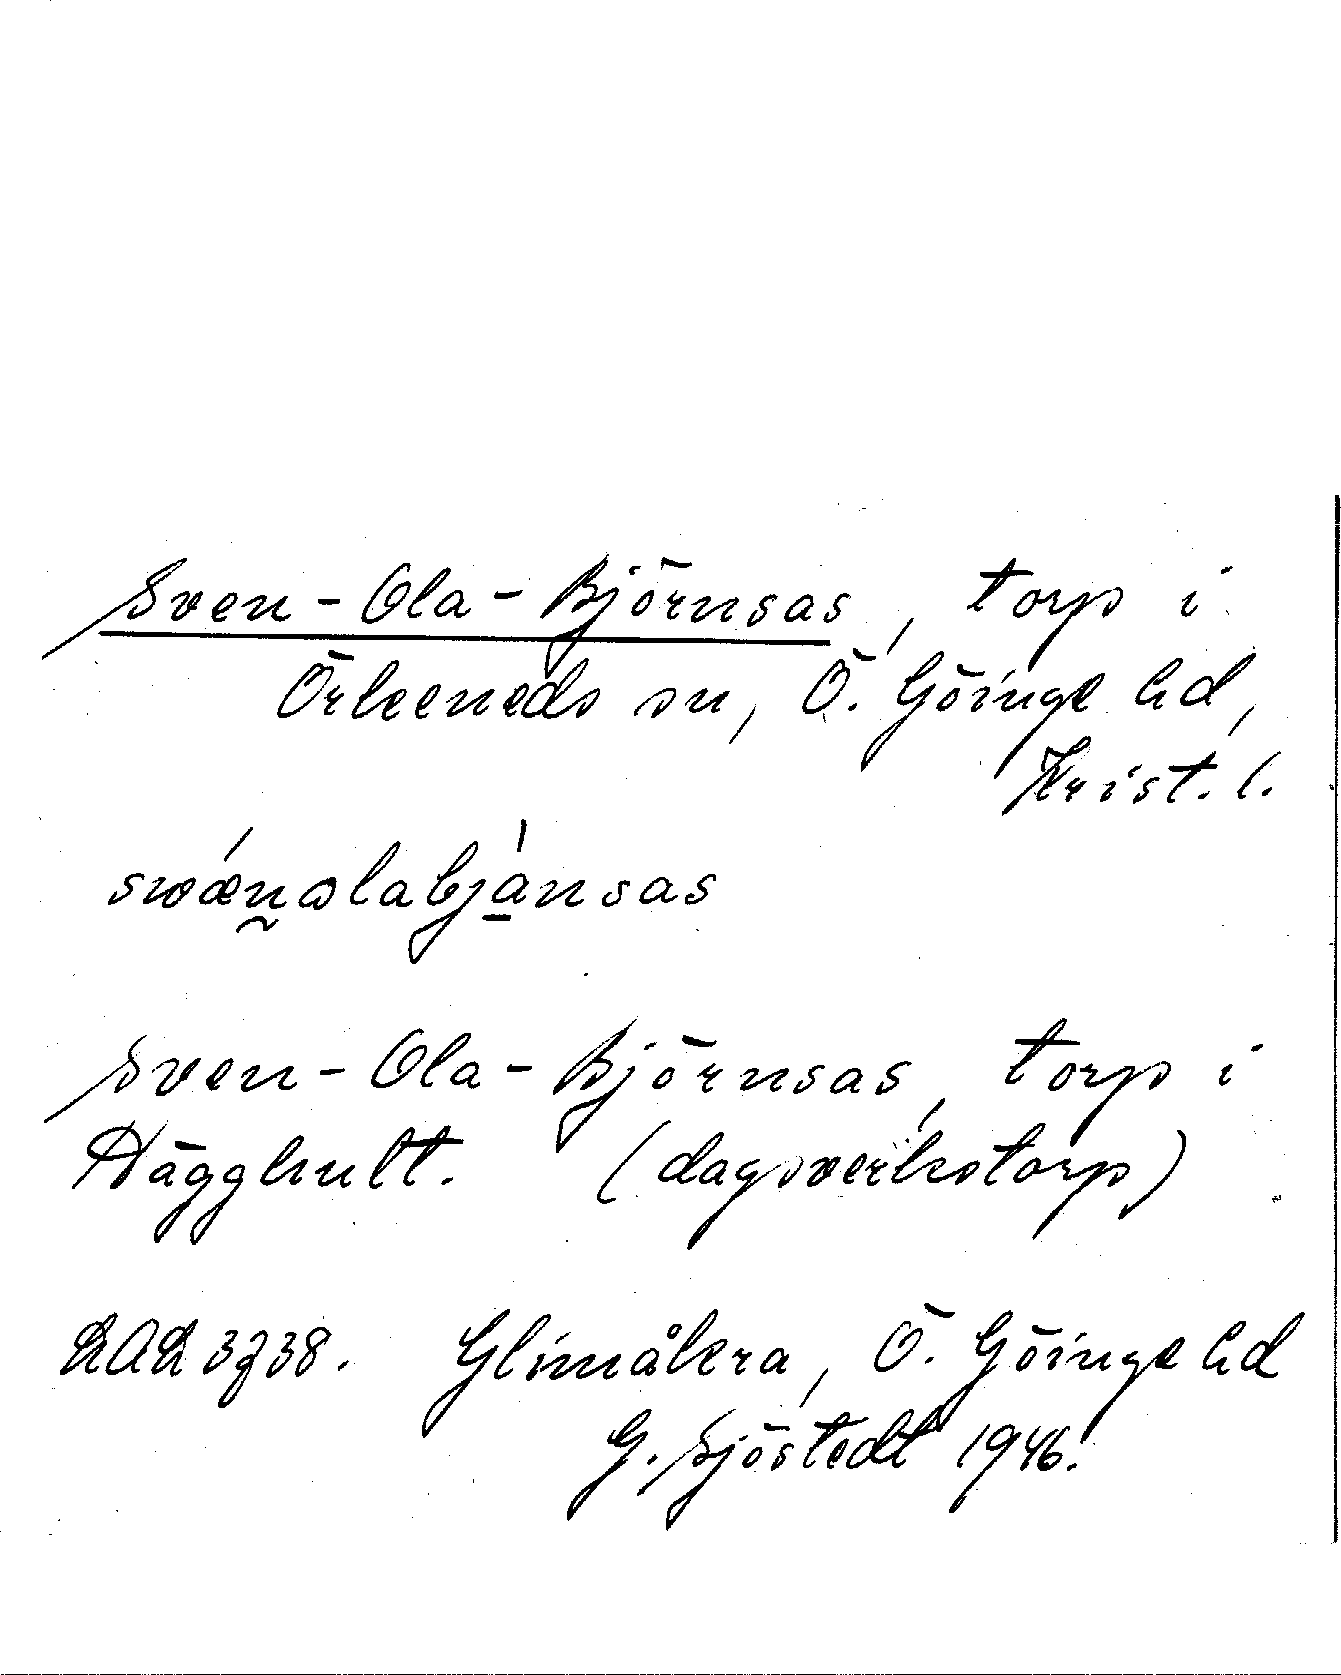 Sven-Ola-Björnsas, torp i
Örkeneds sn, Ö. Göinge hd,
Krist. l.
Sven-Ola-Björnsas, torp i
Hägghult. (dagsverkstorp)
3738. Glimåkra, Ö. Göinge hd
G. Sjöstedt 1946.